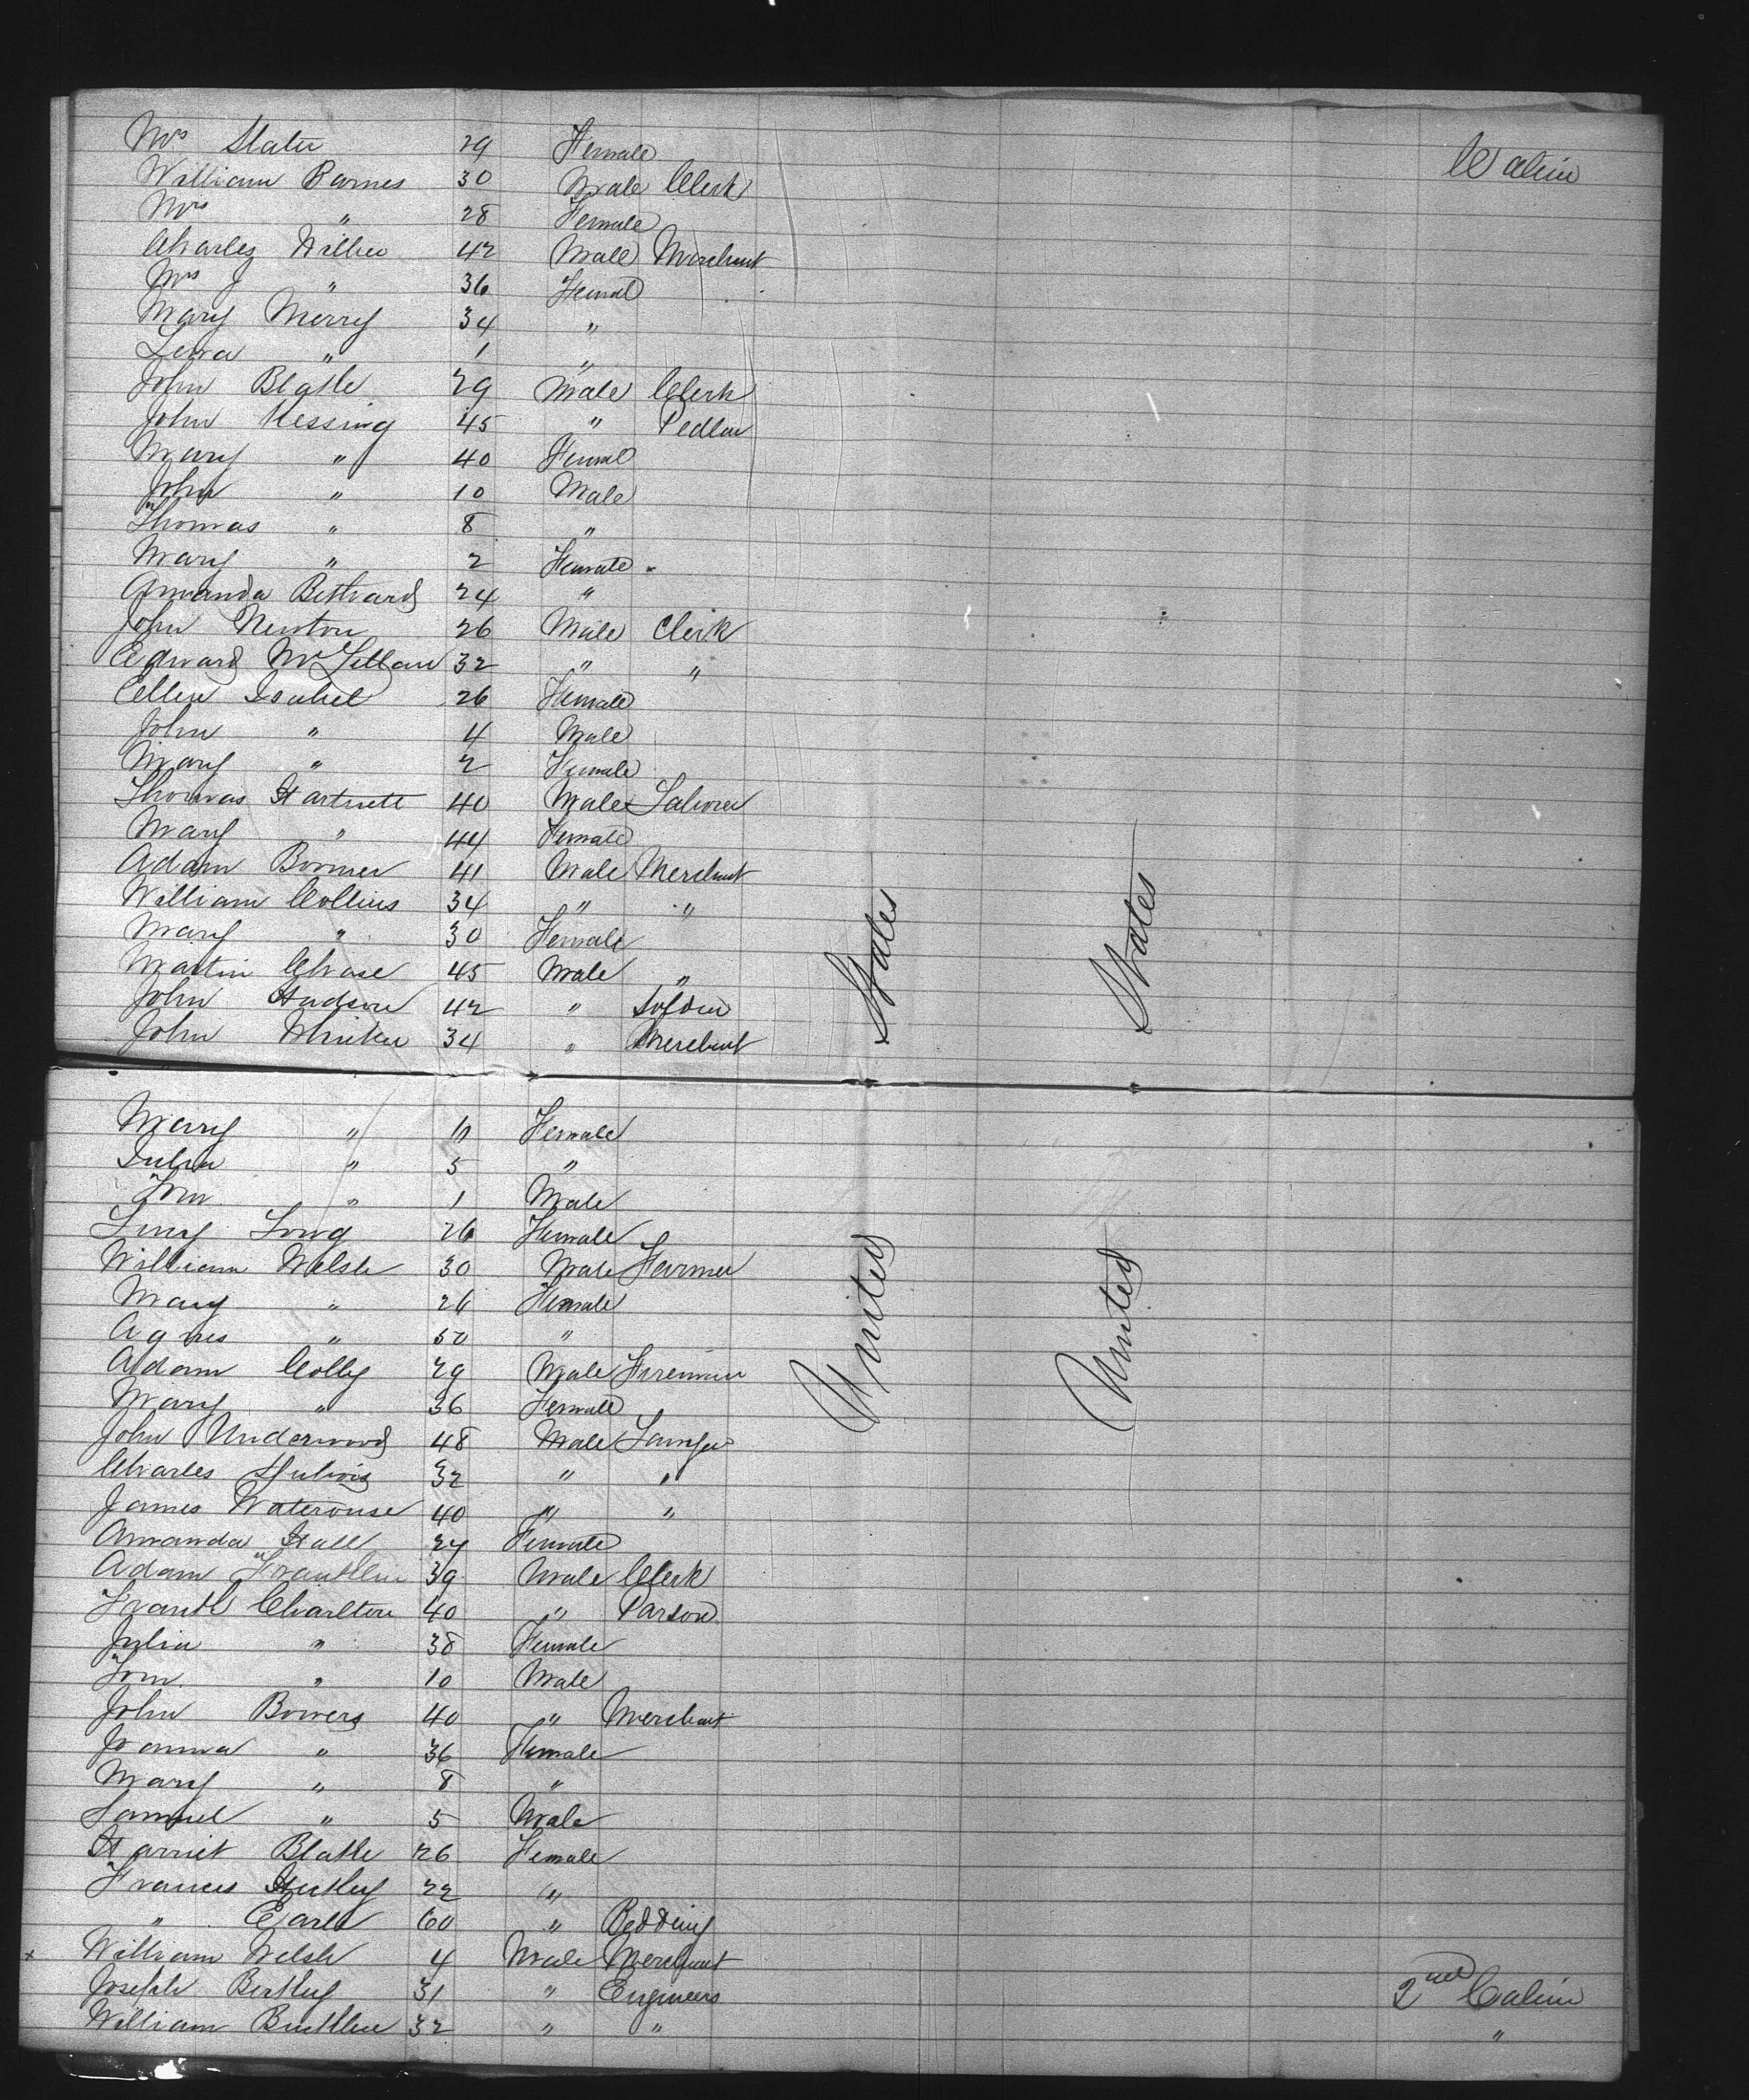 Mrs Slater 29 Female Cabin
William Barnes 30 Male Clerk
Mrs " 28 Female
Charles Miller 42 Male Merchant
Mrs J " 36 Femal
Mary Merry 34 "
Lena " 1 "
John Blake 29 Male Clerk
John Hessing 45 " Pedlar
Mary " 40 Femal
John " 10 Male
Thomas " 8 "
Mary " 2 Female
Amanda 24 "
John Newton 26 Male Clerk
Edward McLellan 32 " "
Ellen Isabel 26 Female
John " 4 Male
Mary " 2 Female
Thomas Hartnett 40 Male Laborer
Mary " 44 Female
Adam Bonner 41 Male Merchant
William Collins 34 " "
Mary " 30 Female
Martin Chase 45 Male "
John Hudson 42 " Soldier
John 34 " Merchant
Mary " 10 Female
Julia " 5 "
Tom " 1 Male
Lucy Long 26 Female
William Welsh 30 Male Farmer
Mary " 26 Female
Agnes " 50 "
Adam Colly 29 Male Fireman
Mary " 36 Female
John Underwood 48 Male Lawyer
Charles 32 " "
James Waterouse 40 " "
Amanda Hall 24 Female
Adam Franklin 39 Male Clerk
Frank Charlton 40 " Parson
Julia " 38 Female
Tom " 10 Male
John Bowers 40 " Merchant
Joanna " 36 Female
Mary " 8 "
Samuel " 5 Male
Harriet Blake 26 Female
Frances 22 "
" Earle 60 "
x William Welsh 4 Male Merchant
Joseph Bertley 31 " Engineers 2nd Cabin
William 32 " " "
United States
United States